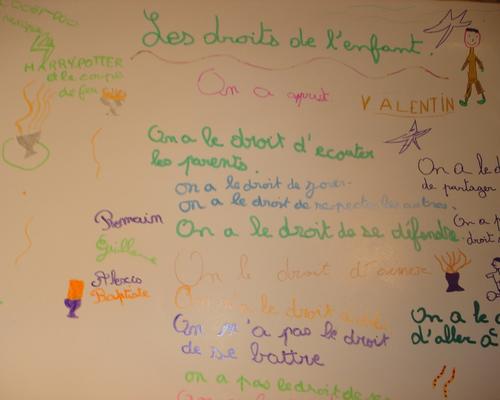 Les droits de l'enfant.
HARRY POTTER
et la coupe
de feu
On a
VALENTIN
On a le droit d'ecouter
les parents.
On a le d
de partager
on a le droit de jouer.
on a le droit de respecter les autres.
Romain
On a le droit de se défendre
On a
droit
Guillaume
On le droit d'aimer
Alexis
Baptiste
On a le droit
On n'a pas le droit
de se battre
On a le
d'aller à
on a pas le droit de